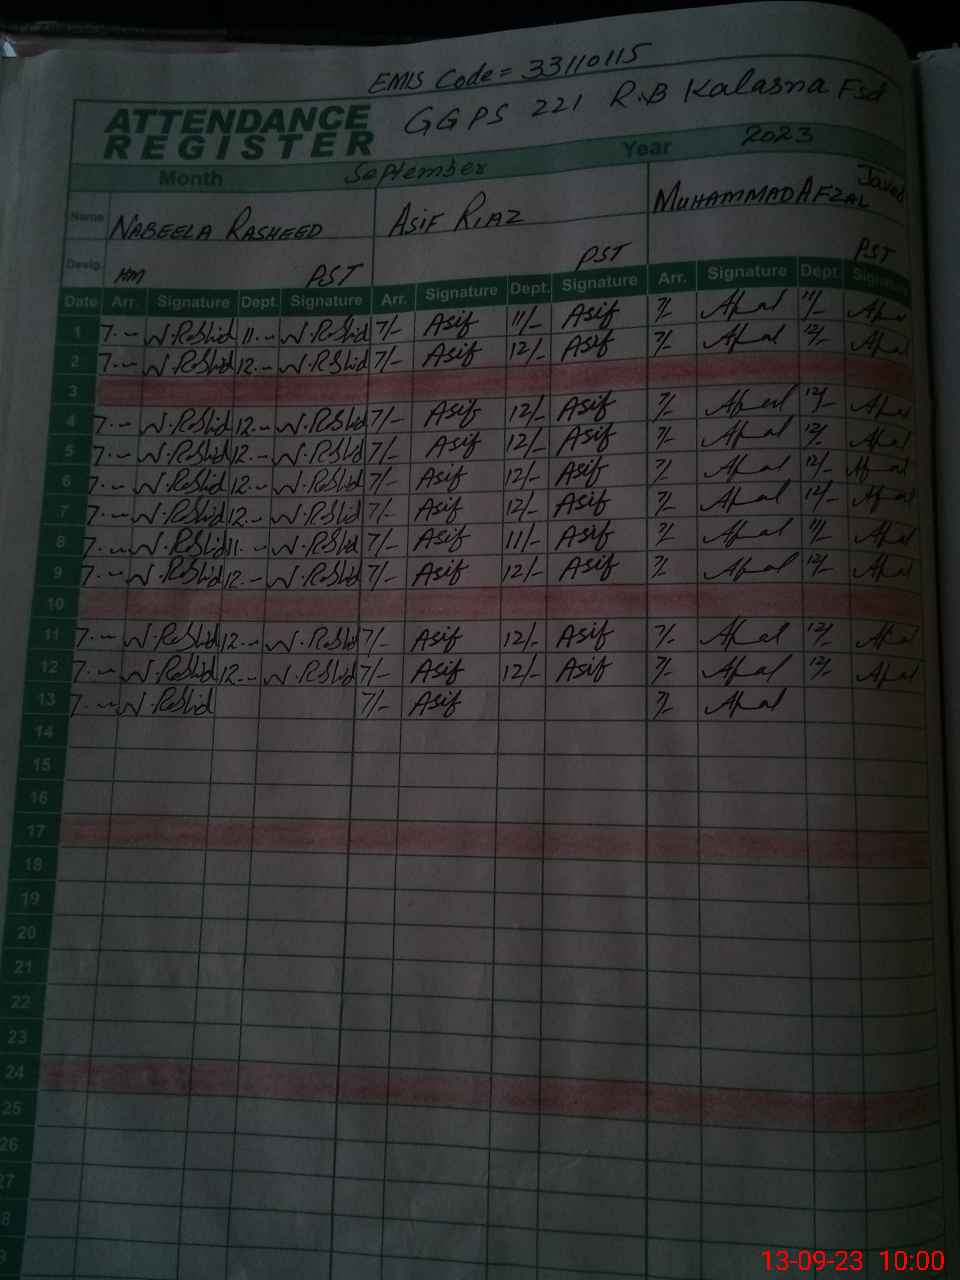 EMIS Code = 33110115
ATTENDANCE REGISTER GGPS 221 R.B Kalasna Fsd
Month September Year 2023
Name NABEELA RASHEED ASIF RIAZ MUHAMMAD AFZAL Javed
Desig. HM PST PST PST
Date Arr. Signature Dept. Signature Arr. Signature Dept. Signature Arr. Signature Dept. Signature
1 7.-- N.Rashid 11.-- N.Rashid 7/- Asif 11/- Asif 7/- Afzal 11/- Afzal
2 7.-- N.Rashid 12.-- N.Rashid 7/- Asif 12/- Asif 7/- Afzal 12/- Afzal
3
4 7.-- N.Rashid 12.-- N.Rashid 7/- Asif 12/- Asif 7/- Afzal 12/- Afzal
5 7.-- N.Rashid 12.-- N.Rashid 7/- Asif 12/- Asif 7/- Afzal 12/- Afzal
6 7.-- N.Rashid 12.-- N.Rashid 7/- Asif 12/- Asif 7/- Afzal 12/- Afzal
7 7.-- N.Rashid 12.-- N.Rashid 7/- Asif 12/- Asif 7/- Afzal 12/- Afzal
8 7.-- N.Rashid 11.-- N.Rashid 7/- Asif 11/- Asif 7/- Afzal 11/- Afzal
9 7.-- N.Rashid 12.-- N.Rashid 7/- Asif 12/- Asif 7/- Afzal 12/- Afzal
10
11 7.-- N.Rashid 12.-- N.Rashid 7/- Asif 12/- Asif 7/- Afzal 12/- Afzal
12 7.-- N.Rashid 12.-- N.Rashid 7/- Asif 12/- Asif 7/- Afzal 12/- Afzal
13 7.-- N.Rashid 7/- Asif 7/- Afzal
14
15
16
17
18
19
20
21
22
23
24
25
26
27
8
9
13-09-23 10:00